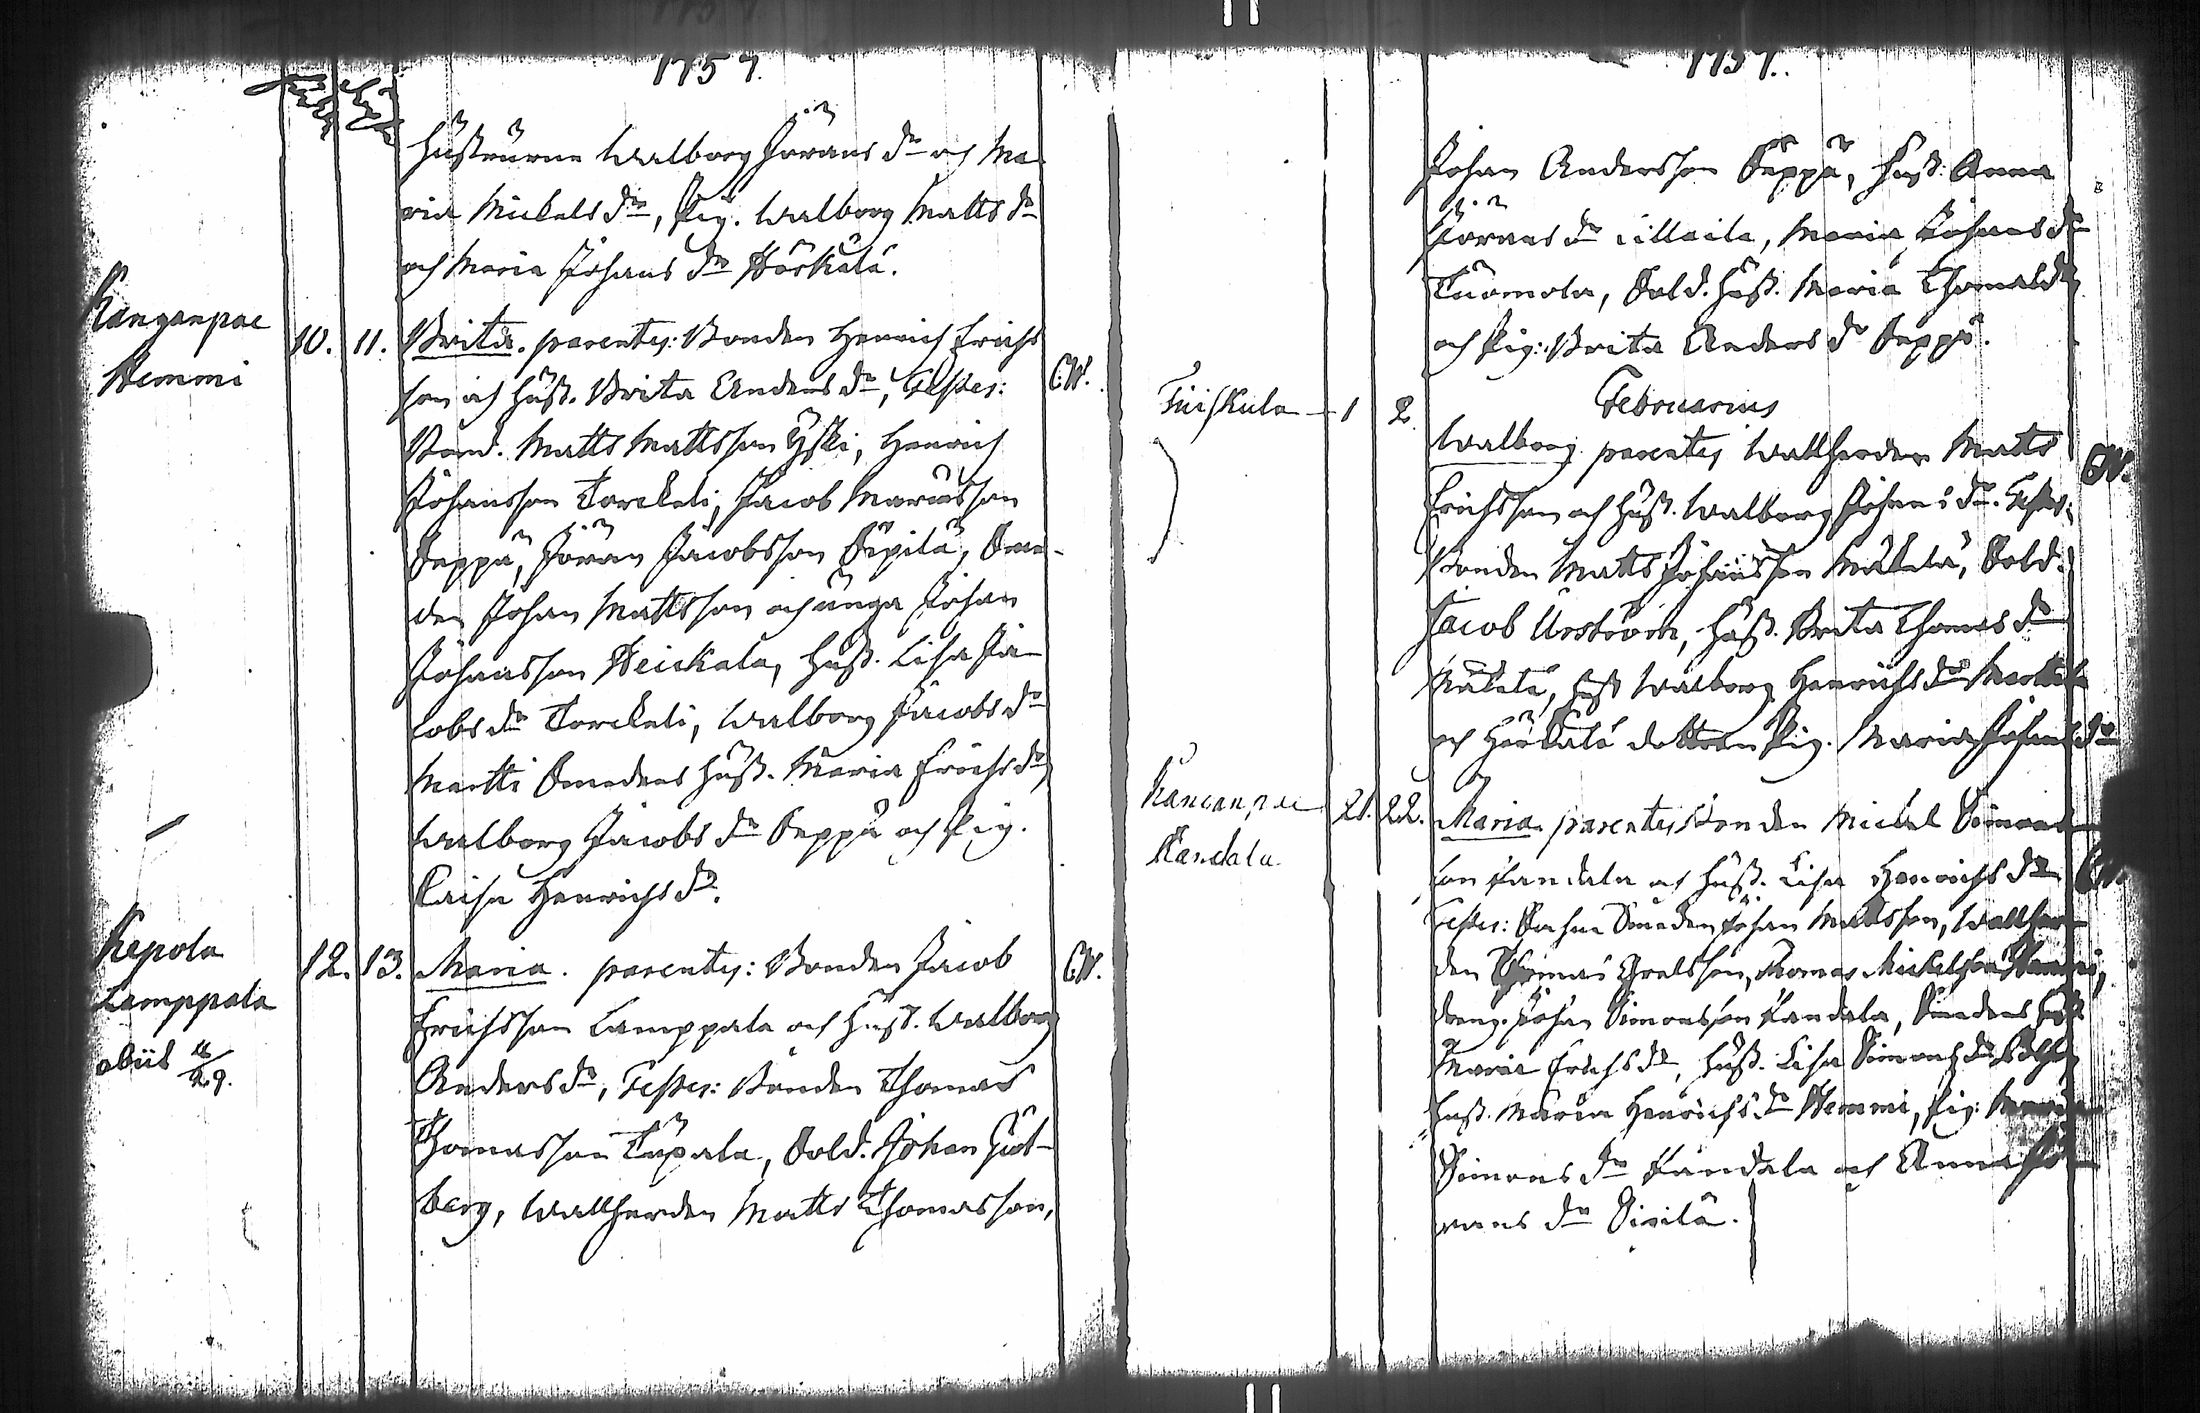 1757.
Hustrurne Walborg Jörans dr och Ma
ria Mickels dr, Pig. Walborg Matts dr
och Maria Johans dr Härkälä.
Kanganpae
Hemmi
10. 11. Brita. parentes: Bonden Henrich Erichs
son och Hust. Brita Anders dr, Testes: CW.
Bond. Matts Mattsson Yski, Henrich
Johansson Torckeli, Jacob Marcusson
Seppä, Jöran Jacobsson Sipilä, Sme-
den Johan Mattsson och unga Johan
Johansson Heickala, Hust. Lisa Ja
cobs dr Torckeli, Walborg Jacobs dr
Martti Smedens Hust. Maria Erichs dr
Walborg Jacobs dr Seppä och Pig.
Caisa Henrichs dr.
Repola
Lamppala
obiit
12. 13. Maria. parentes: Bonden Jacob CW.
Erichsson Lamppala och Hust. Walborg
Anders dr, Testes: Bonden Thomas
Thomasson Tupala, Sold. Johan Gut-
berg, Wallherden Matts Thomasson,
1757.
Johan Andersson Seppä, Hust. Anna
Jörans dr Cillaila, Maria Johans dr
Tuomola, Sold. Hust. Maria Thomas dr
och Pig: Brita Anders dr Seppä.
Februarius
Tuiskula 1 2 Walborg parentes Wallherden Matts CW.
Erichsson och Hust. Walborg Johans dr. Testes:
Bonden Matts Johansson Mäkelä, Sold.
Jacob Urström, Hust. Brita Thomas dr
Mäkelä, Hust Walborg Henrichs dr Martti
och Härkälä dottren Pig. Maria Johans dr
Kancanpae
Kandala
21. 22. Maria parentes Bonden Mickel Simons
son Kandala och Hust. Lisa Henrichs dr CW.
Testes: Smeden Johan Mattsson, Wallher
den Thomas Grelsson, Thomas Mickelsson Hemmi,
dreng. Johan Simonsson Kandala, Smedens Hust
Maria Erichs dr, Hust. Lisa Simons dr
Hust. Maria Henrichs dr Hemmi, Pig: Maria
Simons dr Kandala och Anna Jö
rans dr Sipilä.